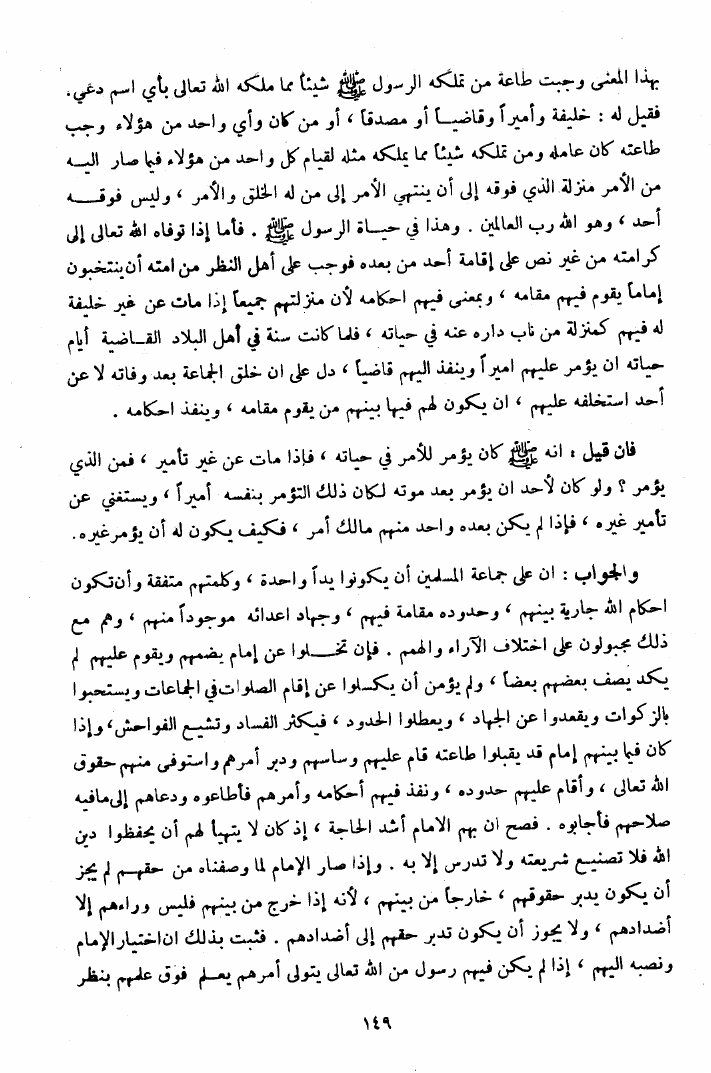 بهذا المعنى وجبت طاعة من تملكه الرسول ﷺ شيئاً مما ملكه الله تعالى بأي اسم دعي.
فقيل له : خليفة وأميراً وقاضيـاً أو مصدقاً ، أو من كان وأي واحد من هؤلاء وجب
طاعته كان عامله ومن تملكه شيئاً مما يملكه مثله لقيام كل واحد من هؤلاء فيما صار اليـه
من الأمر منزلة الذي فوقه إلى أن ينتهي الأمر إلى من له الخلق والأمر ، وليس فوقـــه
أحد ، وهو الله رب العالمين . وهذا في حيـاة الرسول ﷺ . فأما إذا توفاه الله تعالى إلى
كرامته من غير نص على إقامة أحد من بعده فوجب على أهل النظر من امته أن ينتخبون
إماماً يقوم فيهم مقامه ، وبمعنى فيهم احكامه لأن منزلتهم جميعاً إذا مات عن غير خليفة
له فيهم كمنزلة من ناب داره عنه في حياته ، فلما كانت سنة في أهل البلاد القـاضية أيام
حياته ان يؤمر عليهم اميراً وينفذ اليهم قاضياً ، دل على ان خلق الجماعة بعد وفاته لا عن
أحد استخلفه عليهم ، ان يكون لهم فيها بينهم من يقوم مقامه ، وينفذ احكامه .
فان قيل : انه ﷺ كان يؤمر للأمر في حياته ، فإذا مات عن غير تأمير ، فمن الذي
يؤمر ؟ ولو كان لأحد ان يؤمر بعد موته لكان ذلك التؤمر بنفسه أميراً ، ويستغني عن
تأمير غيره ، فإذا لم يكن بعده واحد منهم مالك أمر ، فكيف يكون له أن يؤمر غيره.
والجواب : ان على جماعة المسلمين أن يكونوا يداً واحدة ، وكلمتهم متفقة وأن تكون
احكام الله جارية بينهم ، وحدوده مقامة فيهم ، وجهاد اعدائه موجوداً منهم ، وهم مع
ذلك مجبولون على اختلاف الآراء والهمم . فإن تخـــلوا عن إمام يضمهم ويقوم عليهم لم
يكد يصف بعضهم بعضاً ، ولم يؤمن أن يكسلوا عن إقام الصلوات في الجماعات ويستحبوا
بالزكوات ويقعدوا عن الجهاد ، ويعطلوا الحدود ، فيكثر الفساد وتشيع الفواحش، وإذا
كان فيما بينهم إمام قد يقبلوا طاعته قام عليهم وساسهم ودبر أمرهم واستوفى منهم حقوق
الله تعالى ، وأقام عليهم حدوده ، ونفذ فيهم أحكامه وأمرهم فأطاعوه ودعاهم إلى مافيه
صلاحهم فأجابوه . فصح ان بهم الامام أشد الحاجة ، إذ كان لا يتهيأ لهم أن يحفظوا دين
الله فلا تصنيع شريعته ولا تدرس إلا به . وإذا صار الإمام لما وصفناه من حقهـم لم يجز
أن يكون يدبر حقوقهم ، خارجاً من بينهم ، لأنه إذا خرج من بينهم فليس وراءهم إلا
أضدادهم ، ولا يجوز أن يكون تدبر حقهم إلى أضدادهم . فثبت بذلك ان اختيار الإمام
ونصبه اليهم ، إذا لم يكن فيهم رسول من الله تعالى يتولى أمرهم يعـلم فوق علمهم بنظر
١٤٩